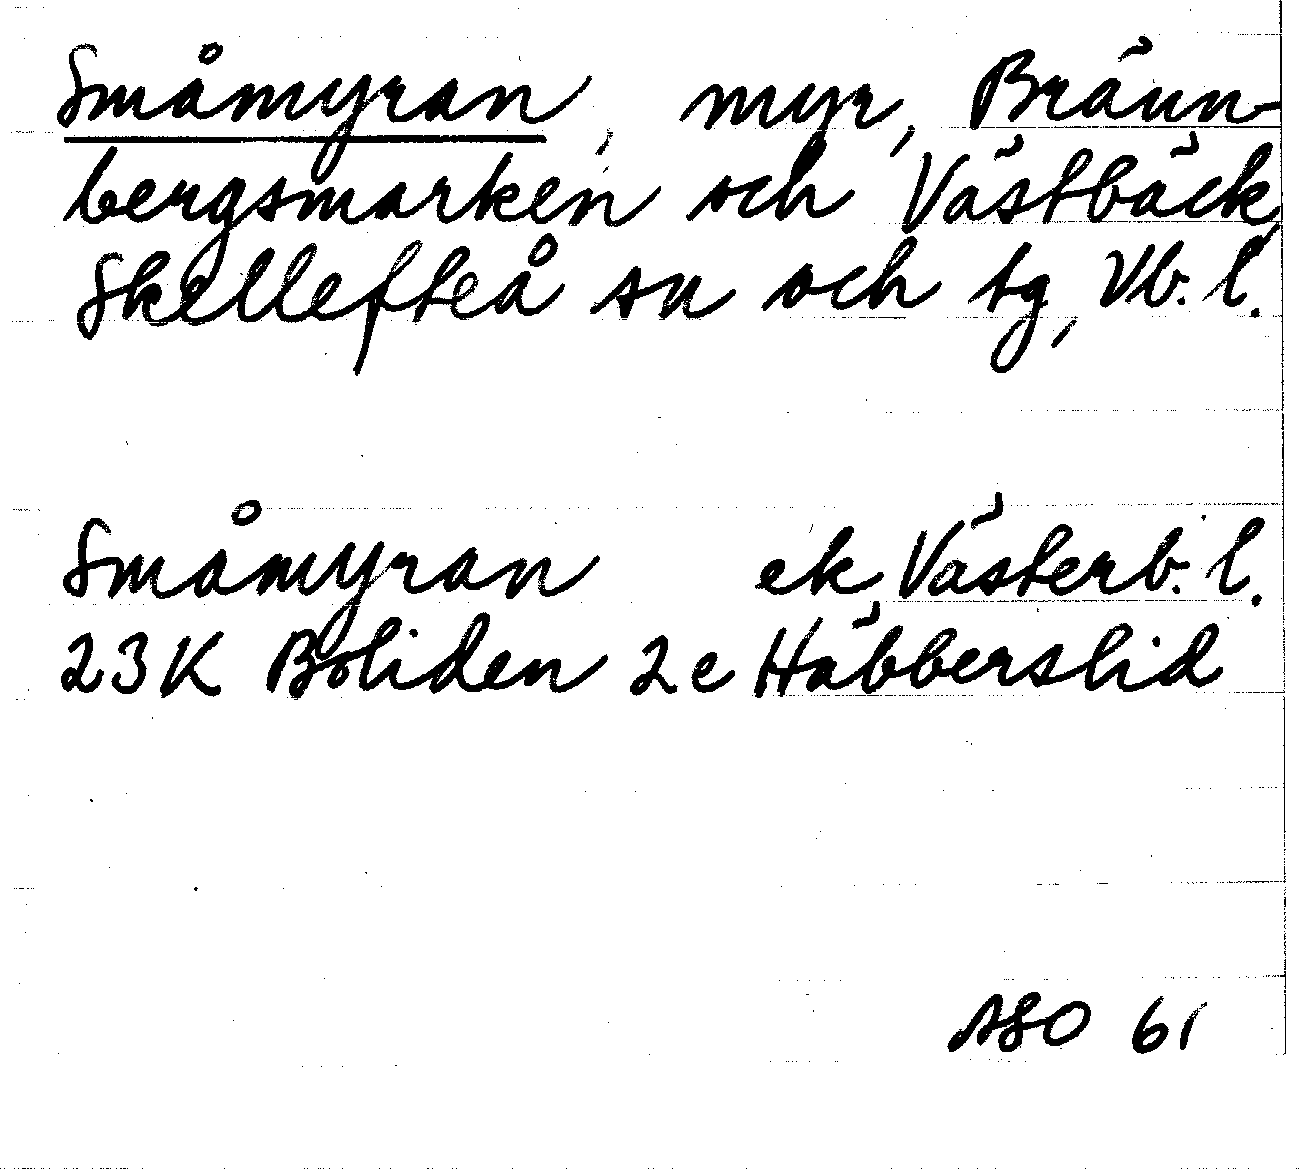 Småmyran, myr, Bräun-
bergsmarken och Västbäck,
Skellefteå sn och tg, Vb. l.
Småmyran ek. Västerb. l.
23K Boliden 2e Häbberslid
ASO 61